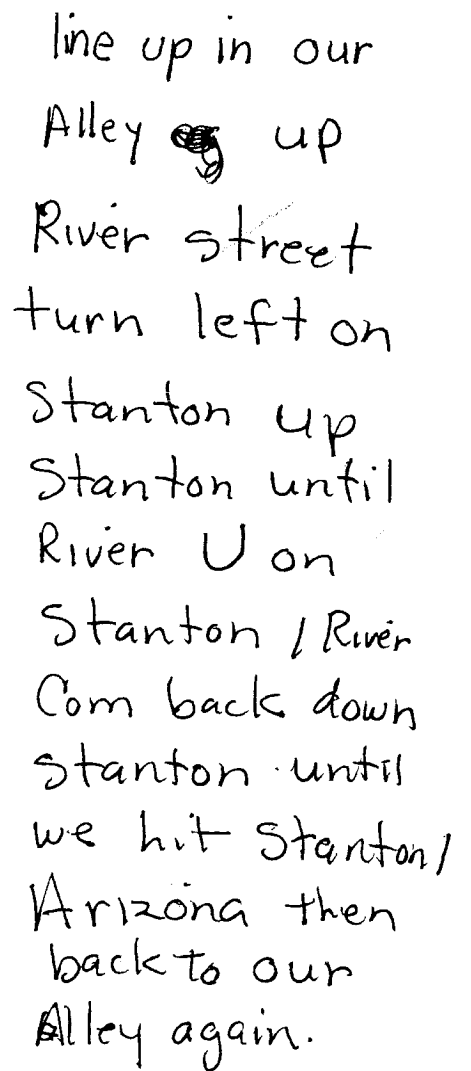 line up in our
Alley up
River street
turn left on
Stanton up
Stanton until
River U on
Stanton / River
Com back down
Stanton until
we hit Stanton /
Arizona then
back to our
Alley again.